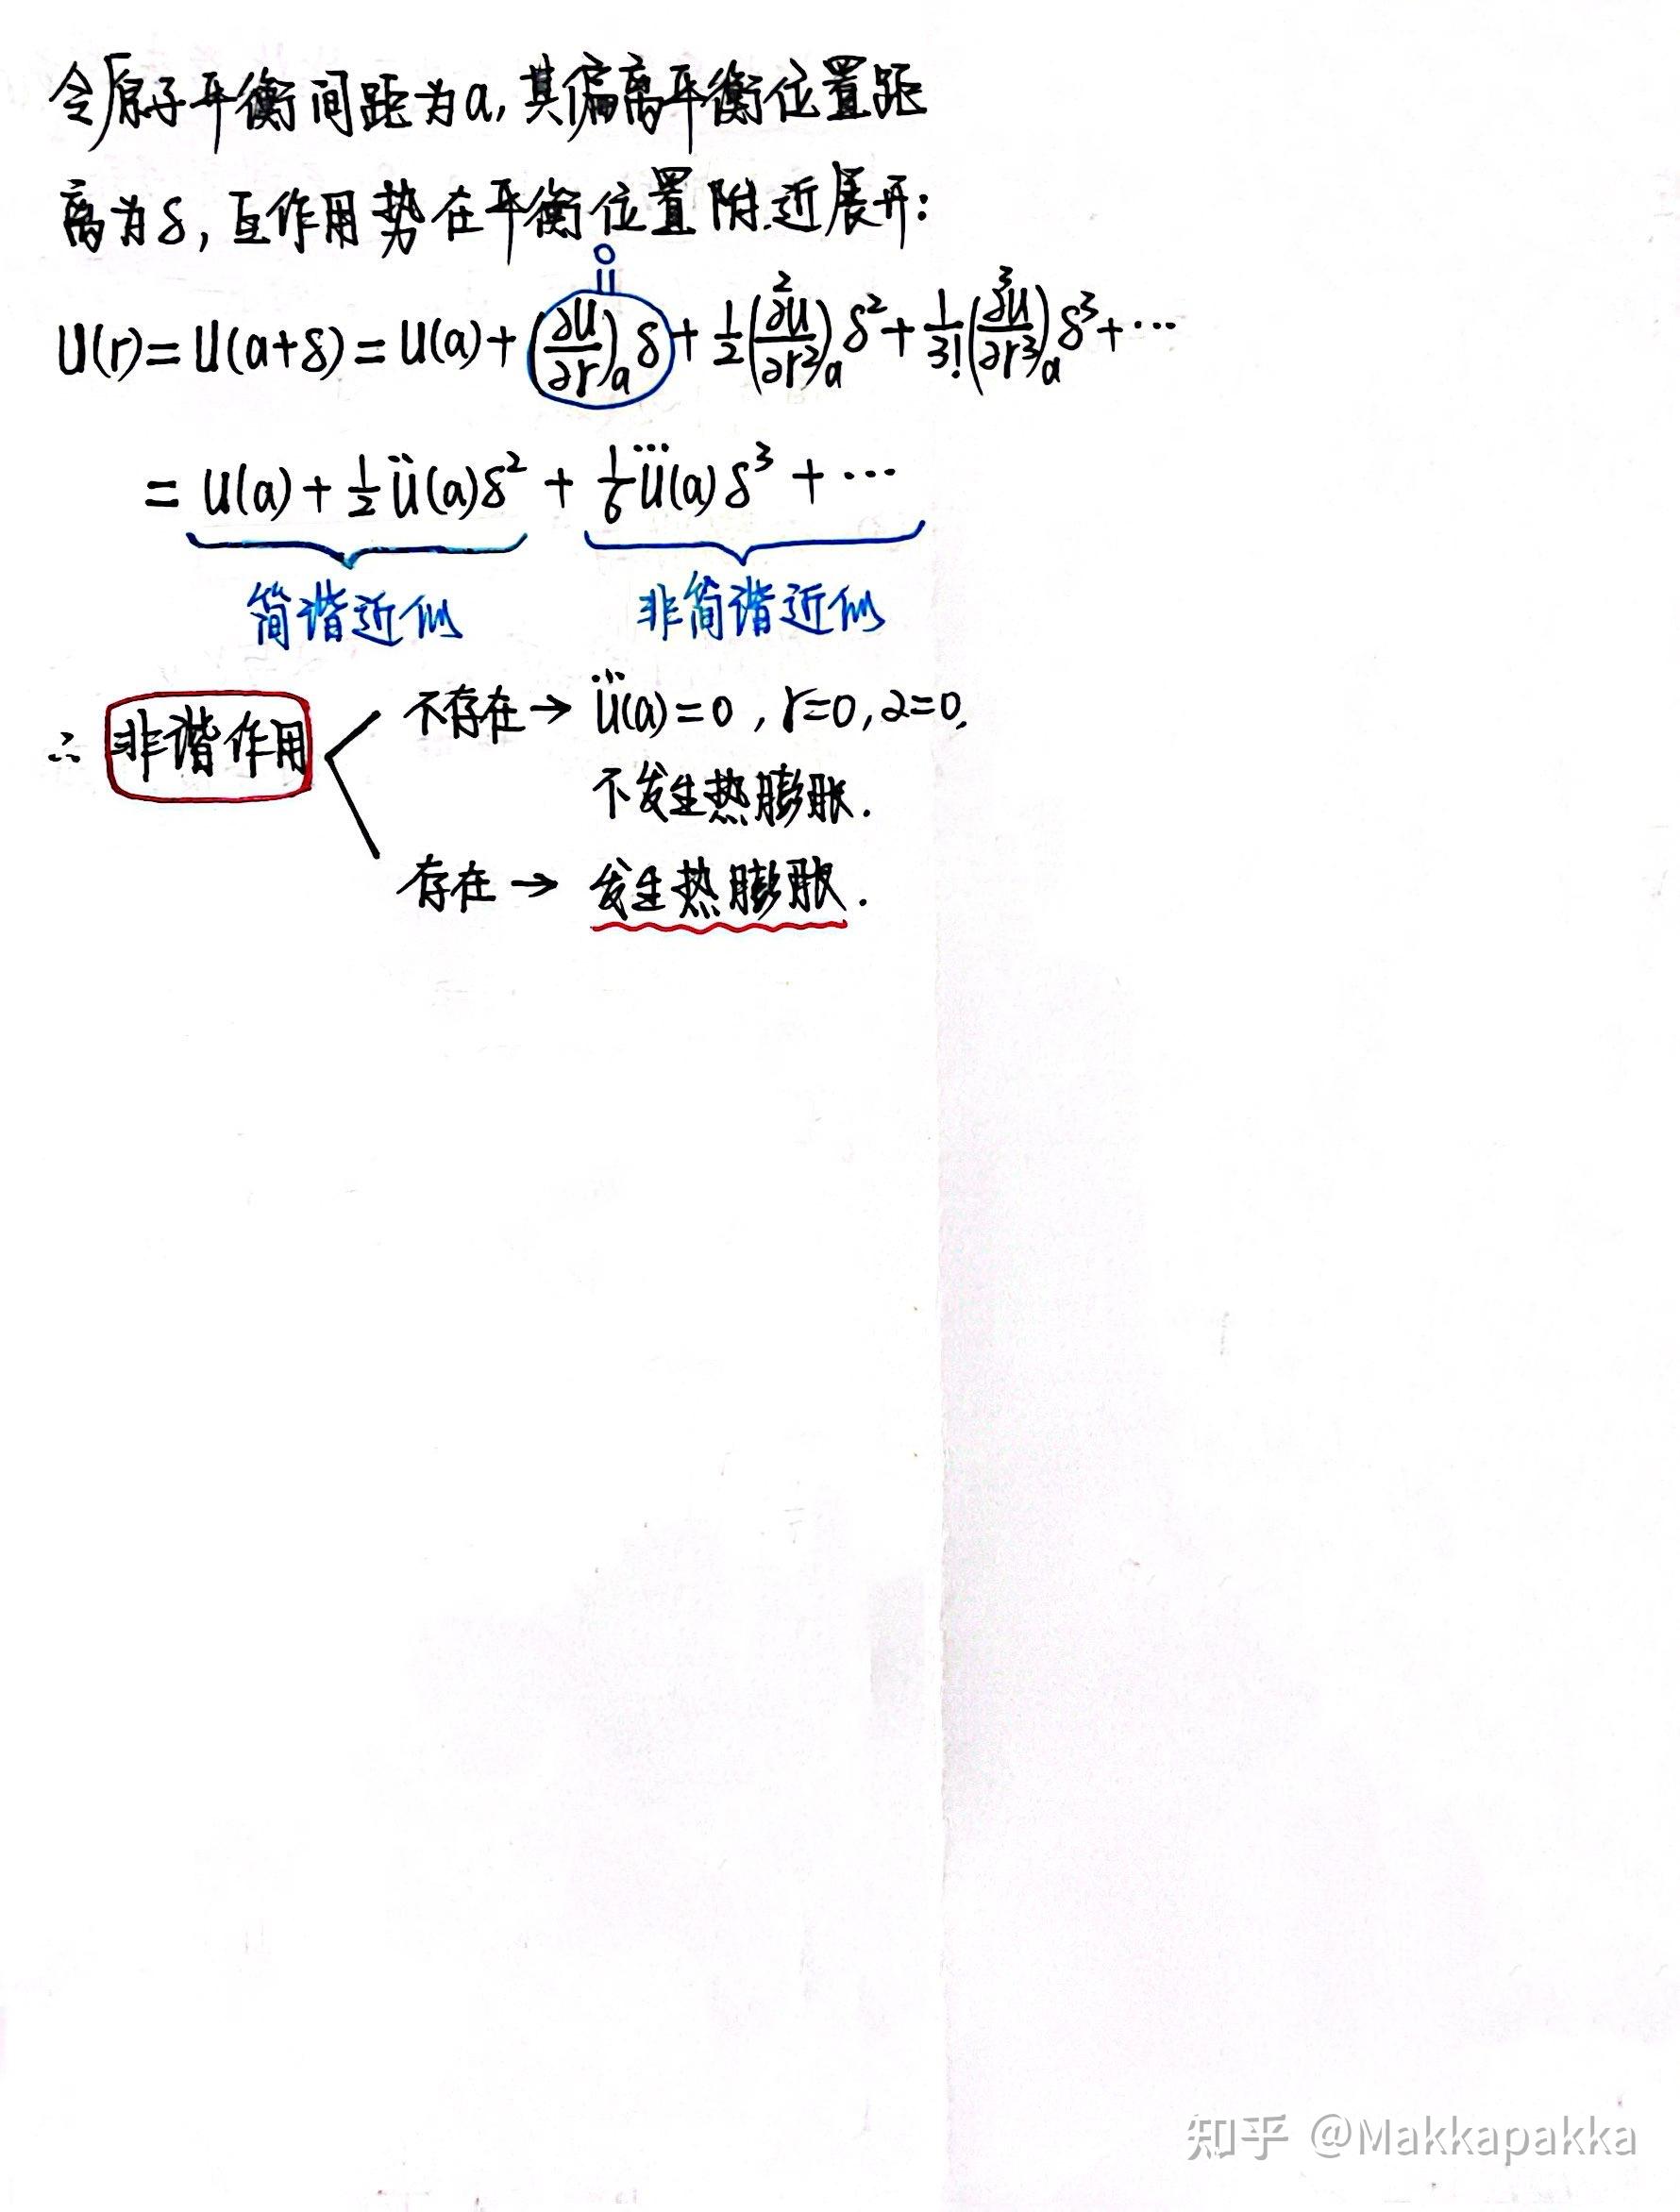 令原子平衡间距为a,其偏离平衡位置距
离为δ,互作用势在平衡位置附近展开:
U(r)=U(a+δ)=U(a)+(∂U/∂r)ₐδ+½(∂²U/∂r²)ₐδ²+1/3!(∂³U/∂r³)ₐδ³+⋯
0
=U(a)+½Ü(a)δ²+⅙U⃛(a)δ³+⋯
简谐近似 非简谐近似
∴ 非谐作用
不存在→U⃛(a)=0,γ=0,α=0,
不发生热膨胀.
存在→发生热膨胀.
知乎 @Makkapakka